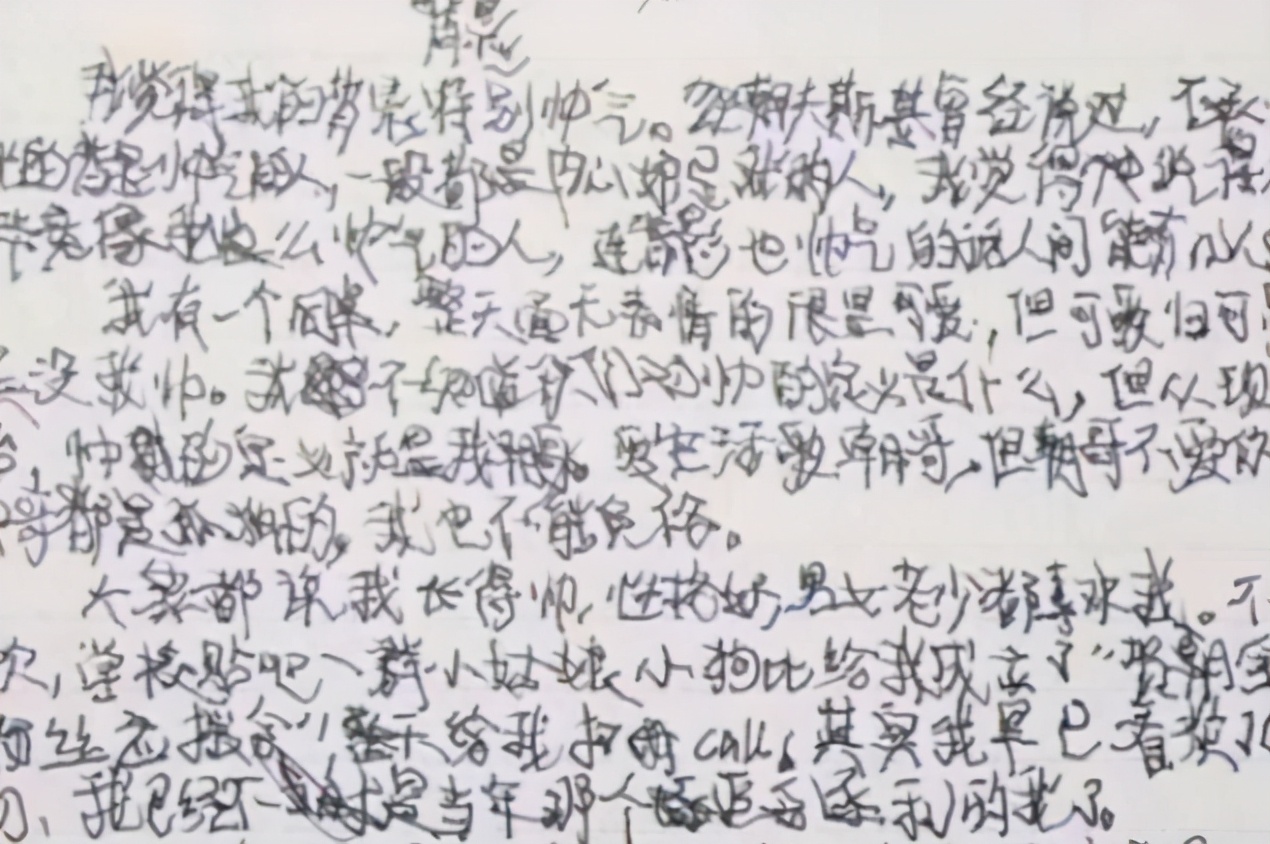 背影
我觉得我的背影特别帅气。朝夫斯基曾经说过，不
的背影帅气的人，一般都是内心的人，我觉得他说得
毕竟像我这么帅气的人，连背影也帅气的话人间能有几
我有一个同桌，整天面无表情的很是可爱，但可爱归可
没我帅。我不知道你们对帅的定义是什么，但从现
，帅的定义就是我。爱生活爱朝哥，但朝哥不爱你
哥都是孤独的，我也不能免俗。
大家都说我长得帅，性格好，男女老少都喜欢我。不
次，学校贴吧一群小姑娘小狗比给我成立了“朝
粉丝应援会”整天给我打call，其实我早已看淡
，我已经不是当年那个的我了。